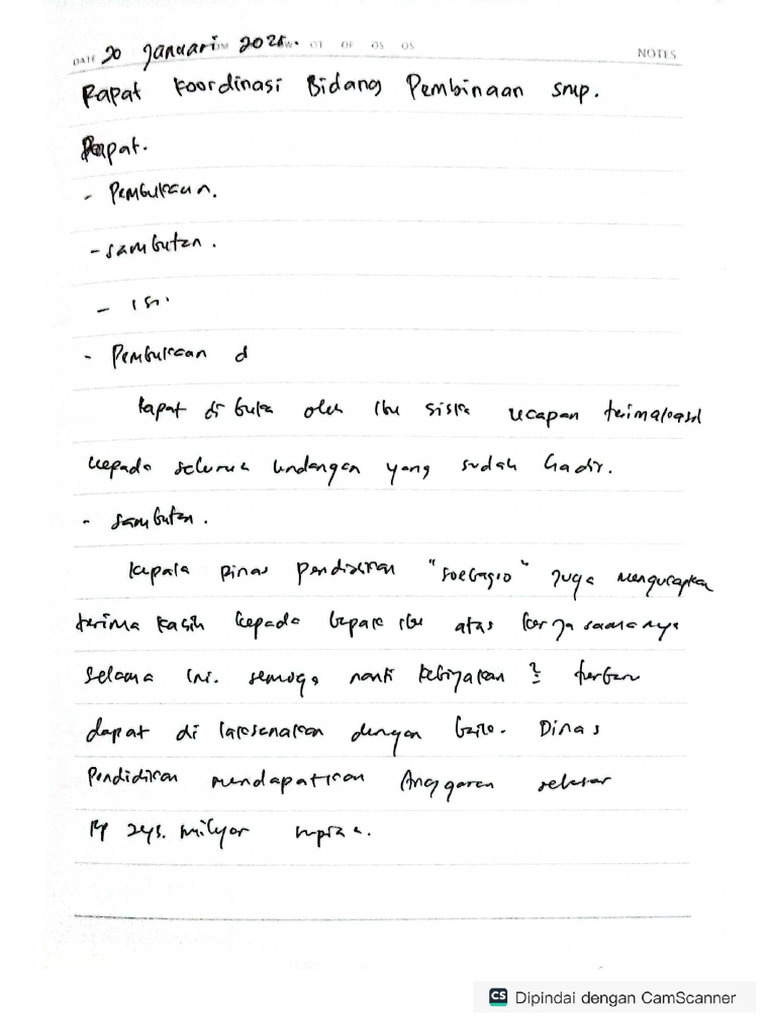 DATE 20 Januari 2025. NOTES
Rapat Koordinasi Bidang Pembinaan smp.
Rapat.
- Pembukaan.
- sambutan.
- isi.
- Pembukaan d
Rapat di buka oleh Ibu siska ucapan terimakasih
kepada seluruh undangan yang sudah hadir.
- sambutan.
kepala Dinas Pendidikan "Soebagio" Juga mengucapkan
terima kasih kepada bapak ibu atas kerja samanya
selama ini. semoga nanti kebijakan 2
dapat di laksanakan dengan baik. Dinas
Pendidikan mendapatkan Anggaran sebesar
Rp milyar rupiah.
CS Dipindai dengan CamScanner